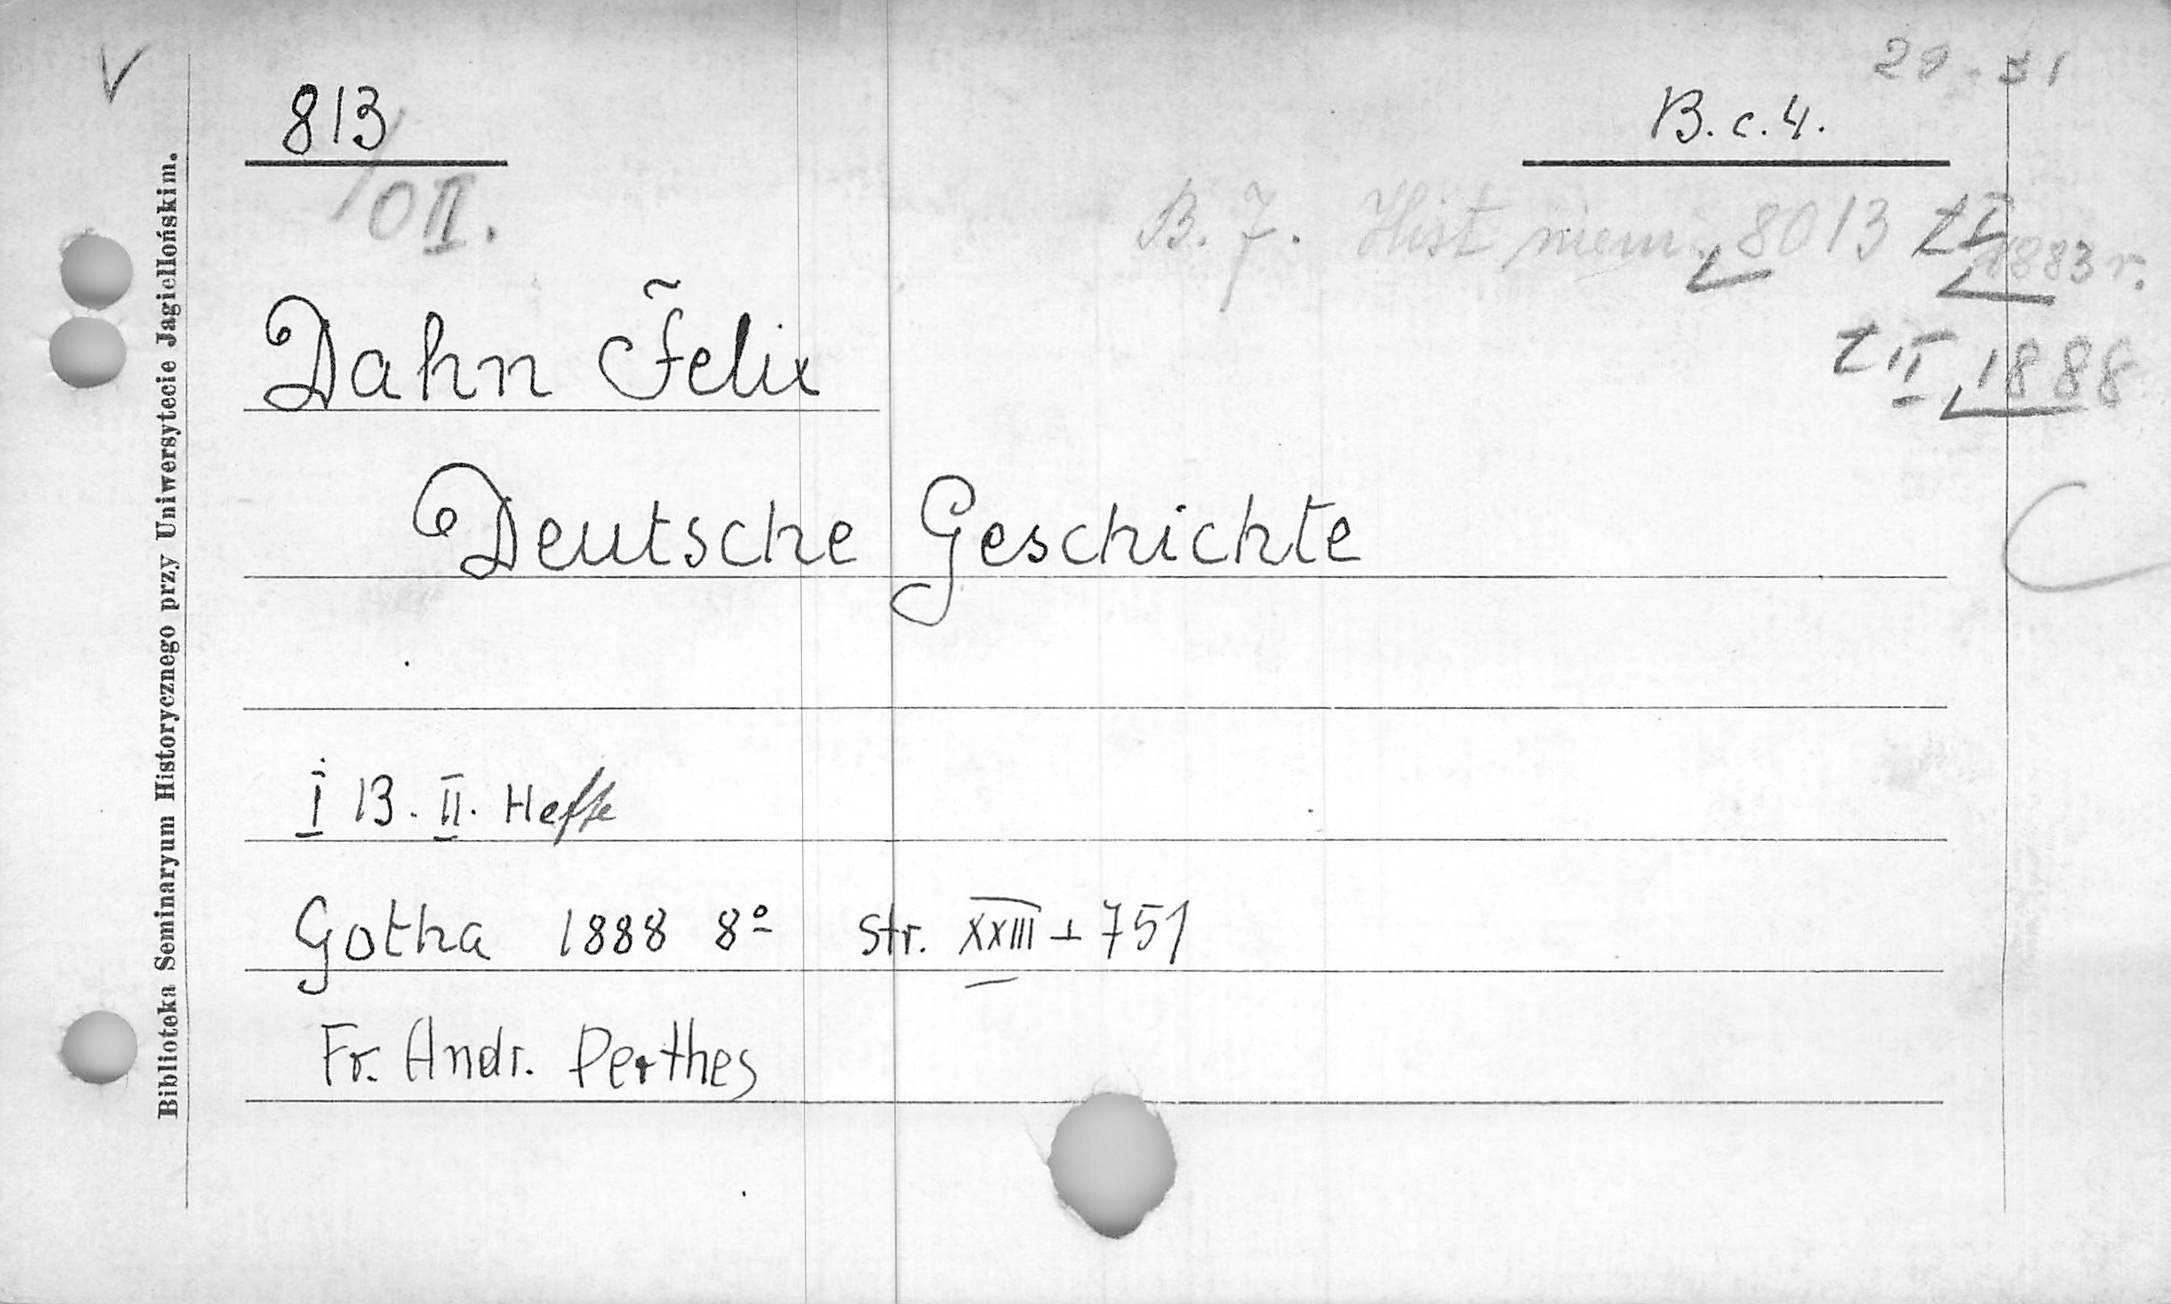 V
20-51
813 B.c.4.
/0 II.
B. 7. Hist niem. 8013 t I 1883 r.
t II 1888
Dahn Felix
Deutsche Geschichte
I B. II. Hefte
Gotha 1888 8° str. XXIII + 751
Fr. Andr. Perthes
Biblioteka Seminaryum Historycznego przy Uniwersytecie Jagiellońskim.